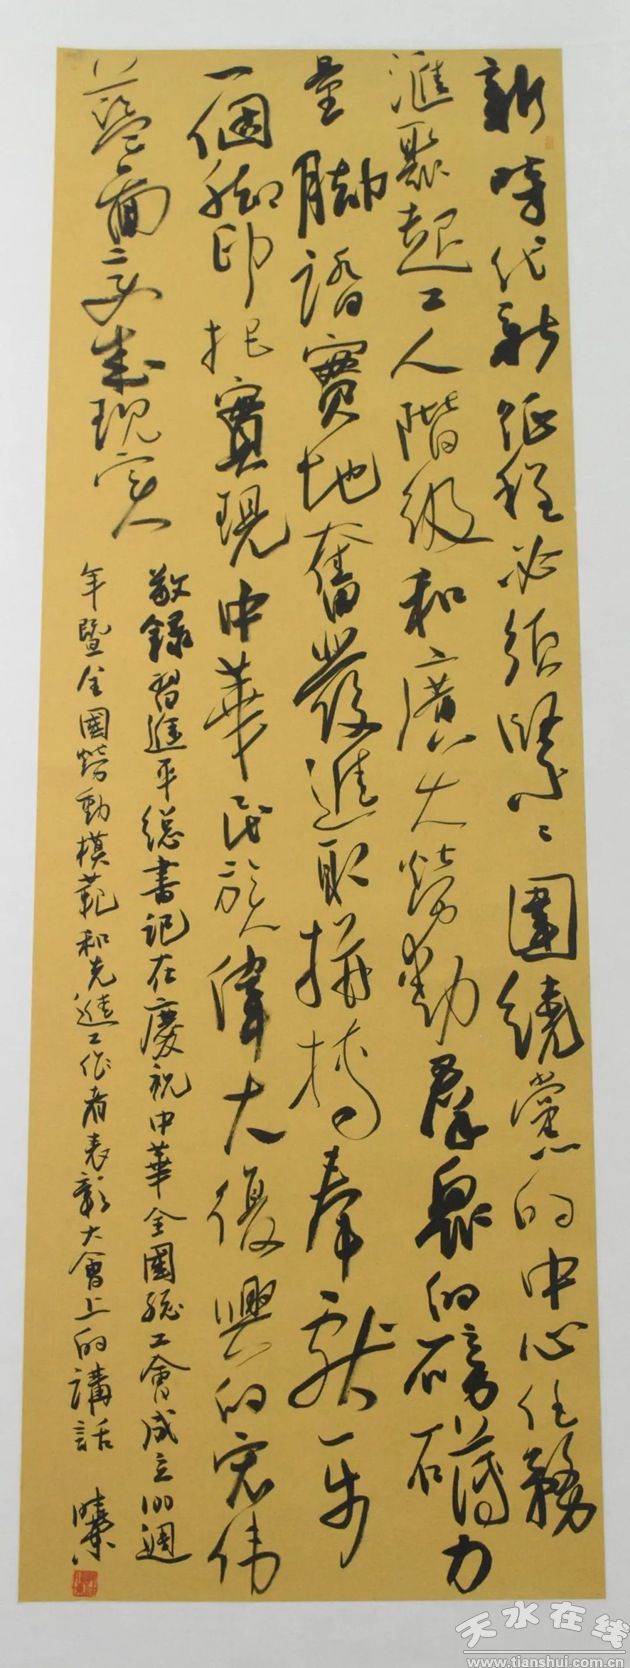 新時代新征程必須緊〻圍繞黨的中心任務
滙聚起工人階級和廣大勞動群衆的磅礴力
量腳踏實地奮發進取拼搏奉獻一步
一個腳印把實現中華民族偉大復興的宏伟
藍圖变成現实
敬錄習進平総書記在慶祝中華全國総工會成立100週
年暨全國勞動模範和先進工作者表彰大會上的講話
天水在线
www.tianshui.com.cn